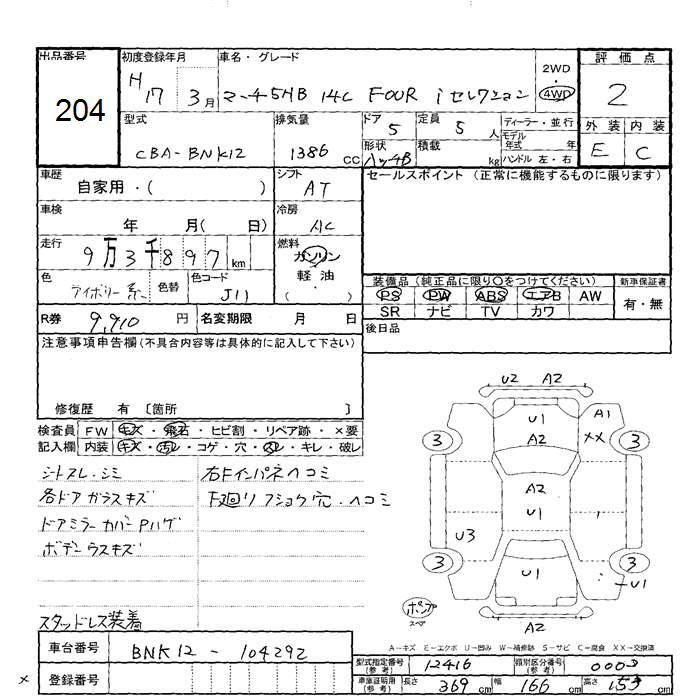 出品番号 204
初度登録年月 H17 3月
車名・グレード マーチ5HB 14C FOUR iセレクション
2WD
4WD
評価点 2
外装 内装
E C
型式 CBA-BNK12
排気量 1386 CC
ドア 5
定員 5 人
形状 ハッチB
積載 kg
ディーラー・並行
モデル年式 年
ハンドル 左・右
車歴 自家用・( )
シフト AT
セールスポイント (正常に機能するものに限ります)
車検 年 月( 日)
冷房 AC
走行 9万3千897 km
燃料 ガソリン
軽油
( )
色 アイボリー系
色替
色コード J11
装備品 (純正品に限り○をつけてください)
新車保証書
PS PW ABS エアB AW
SR ナビ TV カワ
有・無
R券 9,910 円
名変期限 月 日
後日品
注意事項申告欄(不具合内容等は具体的に記入して下さい)
修復歴 有 〔箇所 〕
検査員 FW キズ・飛石・ヒビ割・リペア跡・×要
記入欄 内装 キズ・汚レ・コゲ・穴・スレ・キレ・破レ
シートスレ・シミ
各ドアガラスキズ
ドアミラーカバーPハゲ
ボデーラスキズ
スタッドレス装着
右Fインパネヘコミ
下廻りフショク穴・ヘコミ
U2 A2
U1
A1
A2
XX
3 3
A2
U1
U3
3 3
U1
U1
A2
ポンプ
スペア
A-キズ E-エクボ U-凹み W-補修跡 S-サビ C-腐食 XX-交換済
車台番号 BNK12-104292
登録番号
型式指定番号(参考) 12416
類別区分番号(参考) 0003
車庫証明用(参考) 長さ 369 cm 幅 166 cm 高さ 153 cm
×